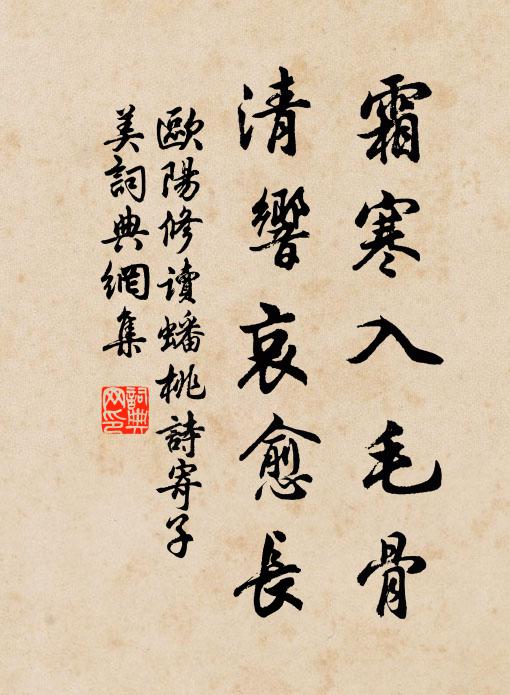 霜寒入毛骨
清響哀愈長
歐陽修讀蟠桃詩寄子
美詞典網集
詞典
网印